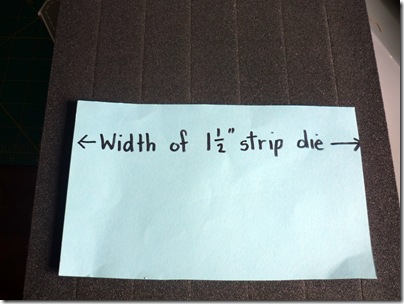 ←Width of 1 1/2" strip die→